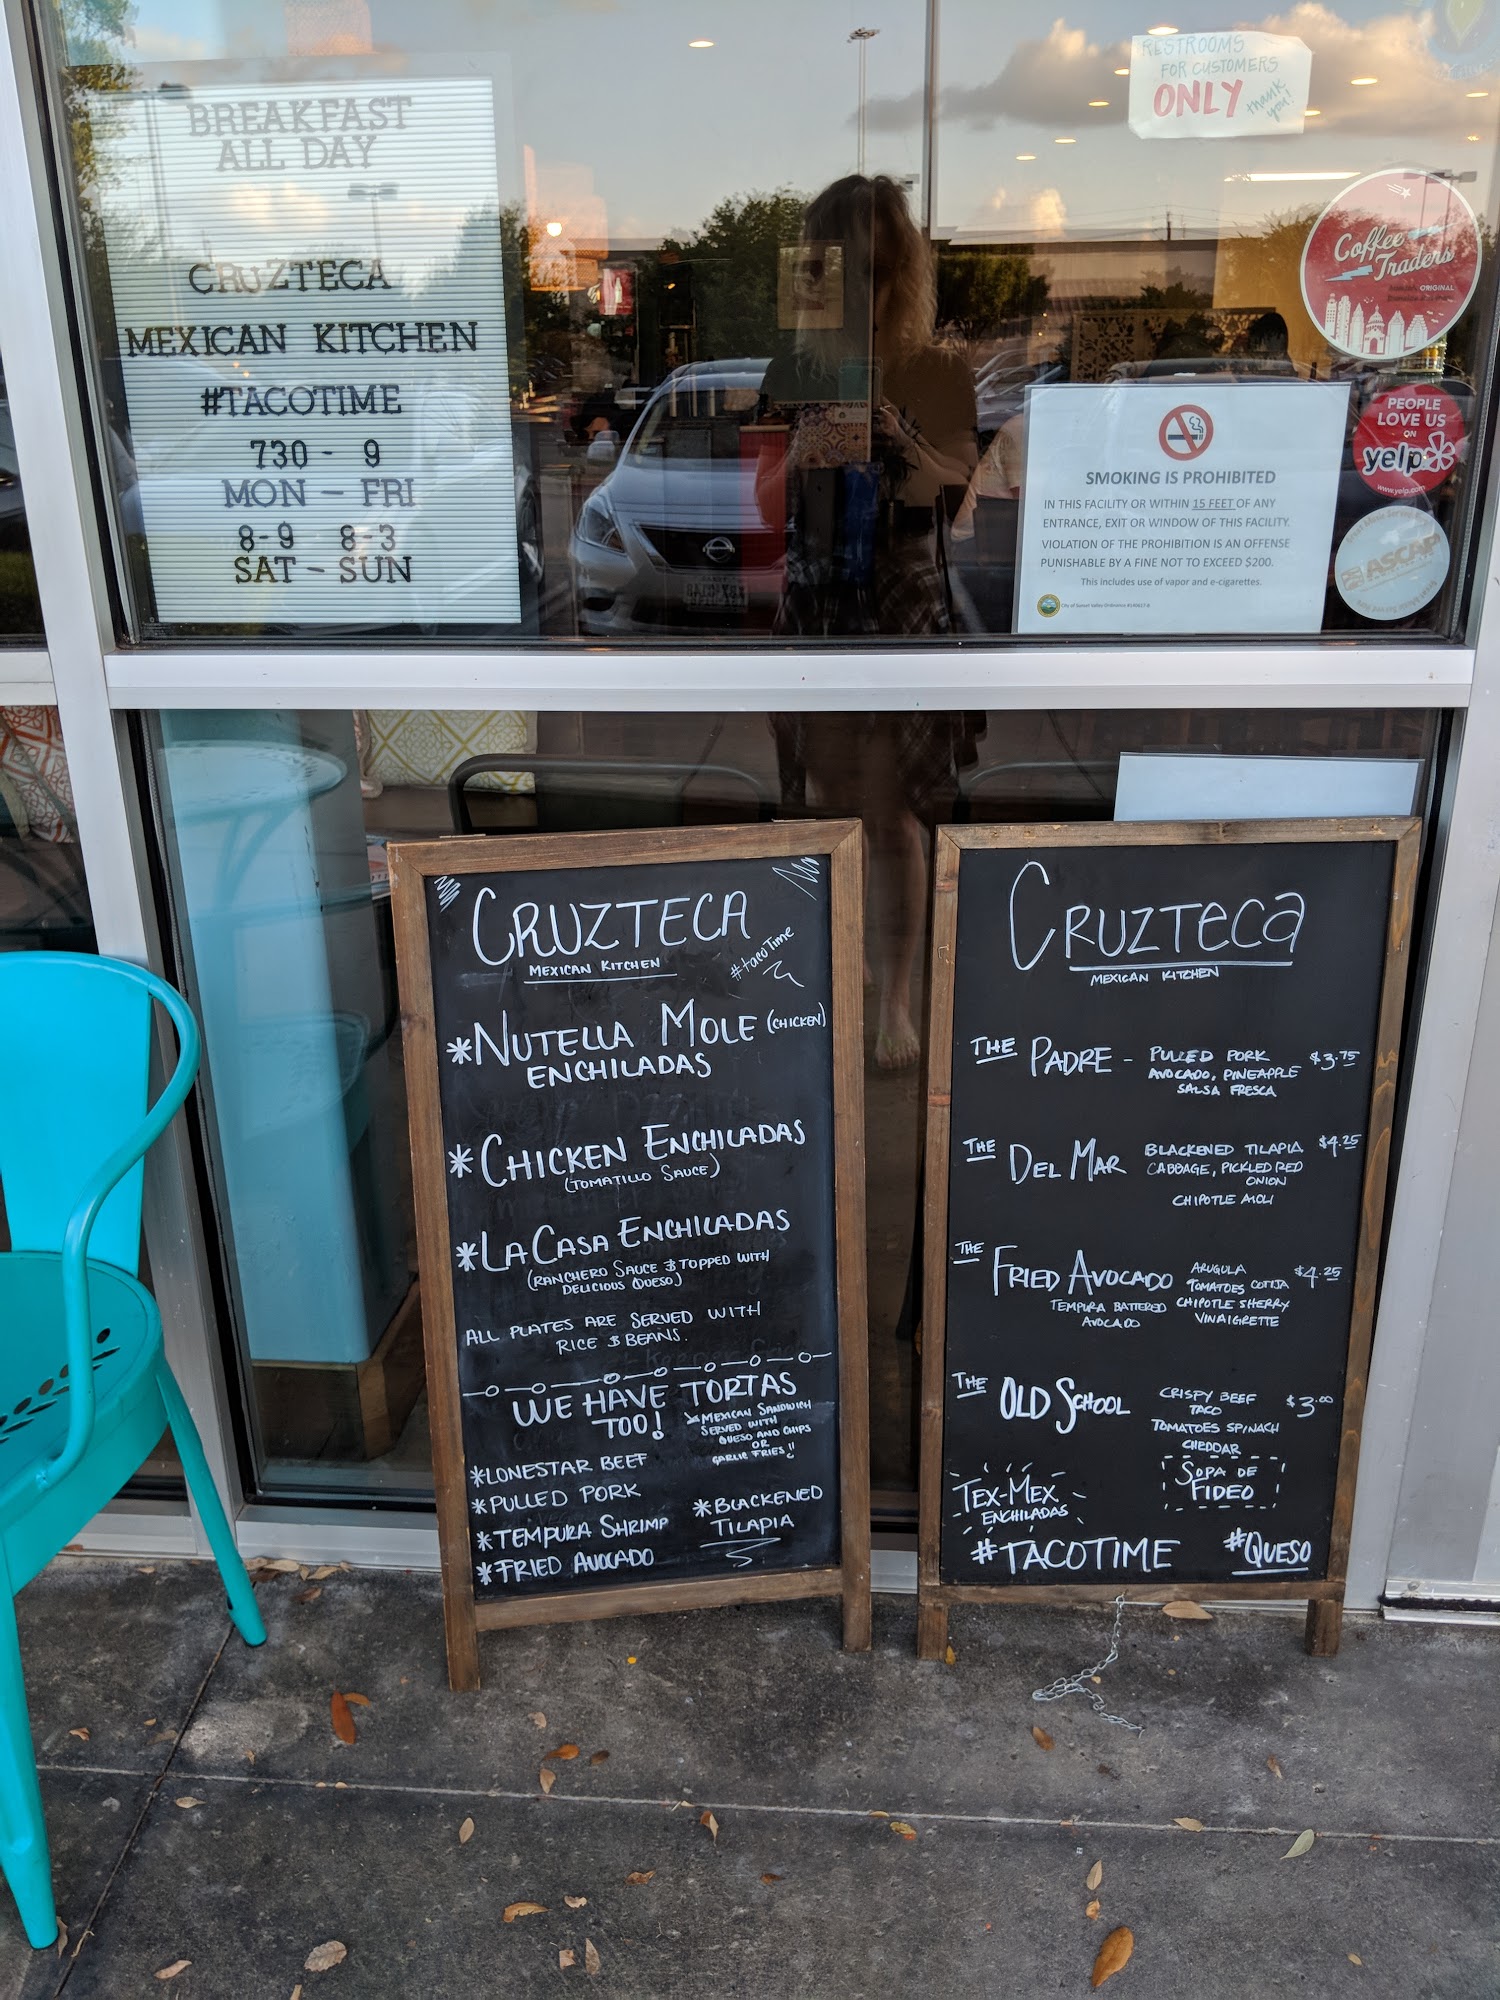 BREAKFAST
ALL DAY
CRUZTECA
MEXICAN KITCHEN
#TACOTIME
730 - 9
MON - FRI
8-9 8-3
SAT - SUN
RESTROOMS
FOR CUSTOMERS
ONLY thank you!
Coffee
Traders
ORIGINAL
SMOKING IS PROHIBITED
IN THIS FACILITY OR WITHIN 15 FEET OF ANY
ENTRANCE, EXIT OR WINDOW OF THIS FACILITY.
VIOLATION OF THE PROHIBITION IS AN OFFENSE
PUNISHABLE BY A FINE NOT TO EXCEED $200.
This includes use of vapor and e-cigarettes.
PEOPLE
LOVE US
ON
yelp
www.yelp.com
ASCAP
CRUZTECA
MEXICAN KITCHEN
#tacoTime
*NUTELLA MOLE (CHICKEN)
ENCHILADAS
*CHICKEN ENCHILADAS
(TOMATILLO SAUCE)
*LA CASA ENCHILADAS
(RANCHERO SAUCE & TOPPED WITH
DELICIOUS QUESO)
ALL PLATES ARE SERVED WITH
RICE & BEANS.
WE HAVE TORTAS
TOO!
MEXICAN SANDWICH
SERVED WITH
QUESO AND CHIPS
OR
GARLIC FRIES!!
*LONESTAR BEEF
*PULLED PORK
*TEMPURA SHRIMP
*FRIED AVOCADO
*BLACKENED
TILAPIA
CRUZTECA
MEXICAN KITCHEN
THE PADRE - PULLED PORK $3.75
AVOCADO, PINEAPPLE
SALSA FRESCA
THE DEL MAR BLACKENED TILAPIA $4.25
CABBAGE, PICKLED RED
ONION
CHIPOTLE AIOLI
THE FRIED AVOCADO ARUGULA $4.25
TEMPURA BATTERED
AVOCADO
TOMATOES COTIJA
CHIPOTLE SHERRY
VINAIGRETTE
THE OLD SCHOOL CRISPY BEEF $3.00
TACO
TOMATOES SPINACH
CHEDDAR
TEX-MEX
ENCHILADAS
SOPA DE
FIDEO
#TACOTIME #QUESO